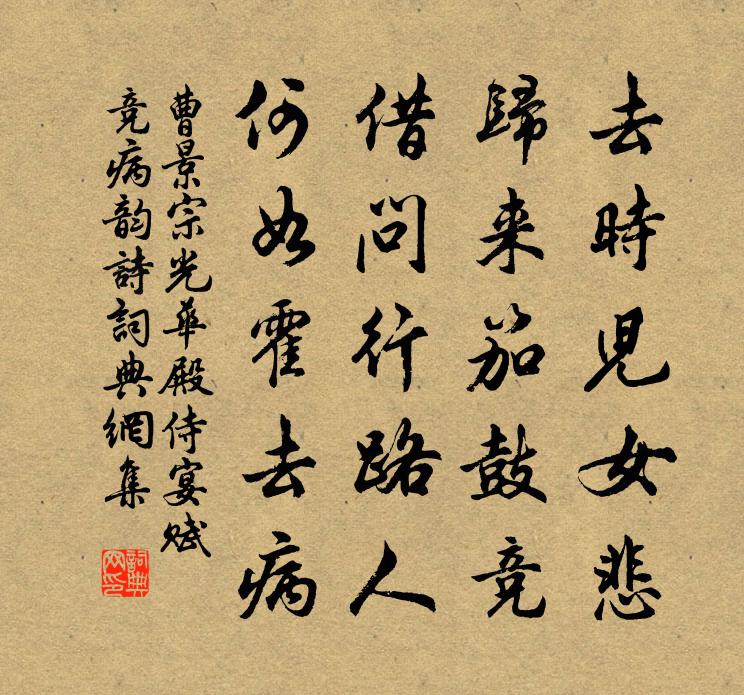 去時兒女悲
歸来笳鼓竞
借問行路人
何如霍去病
曹景宗光華殿侍宴賦
竞病韵詩詞典網集
詞典網印